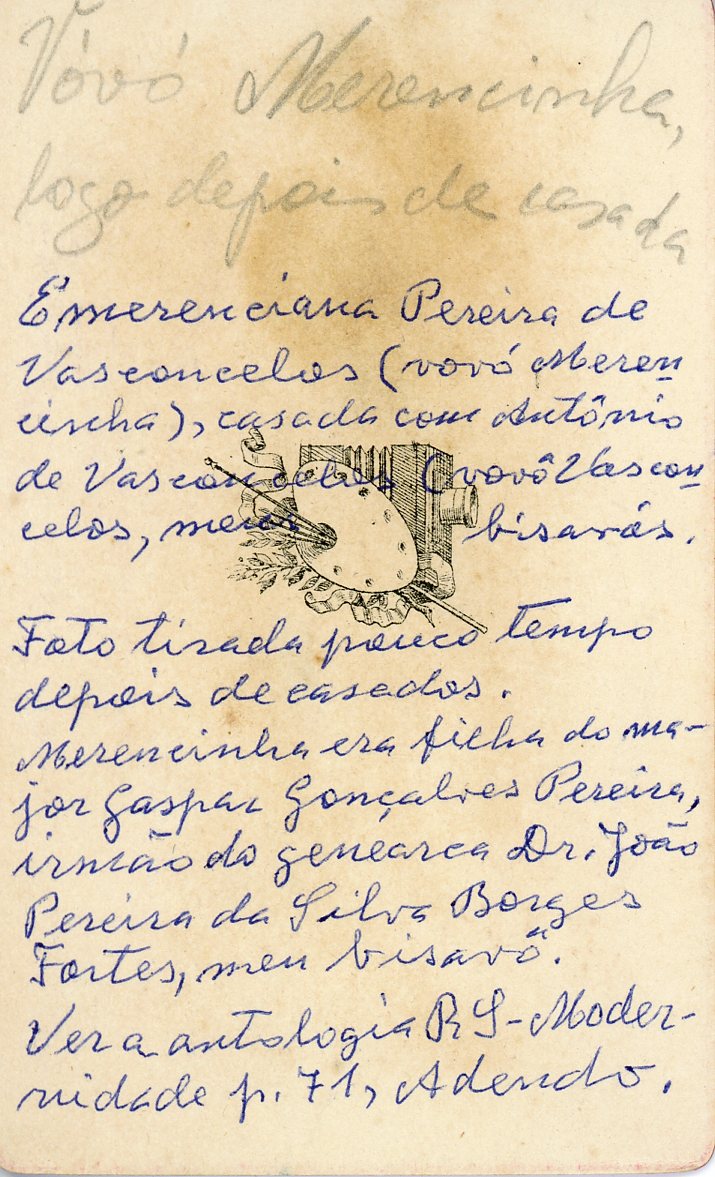 Vóvó Merencinha,
logo depois de casada
Emerenciana Pereira de
Vasconcelos (vovó Meren
cinha), casada com Antônio
de Vasconcelos (vovô Vascon
celos, meus bisavós.
Foto tirada pouco tempo
depois de casados.
Merencinha era filha do ma-
jor Gaspar Gonçalves Pereira,
irmão do genearca Dr. João
Pereira da Silva Borges
Fortes, meu bisavô.
Ver a antologia RS-Moder-
nidade p. 71, Adendo.